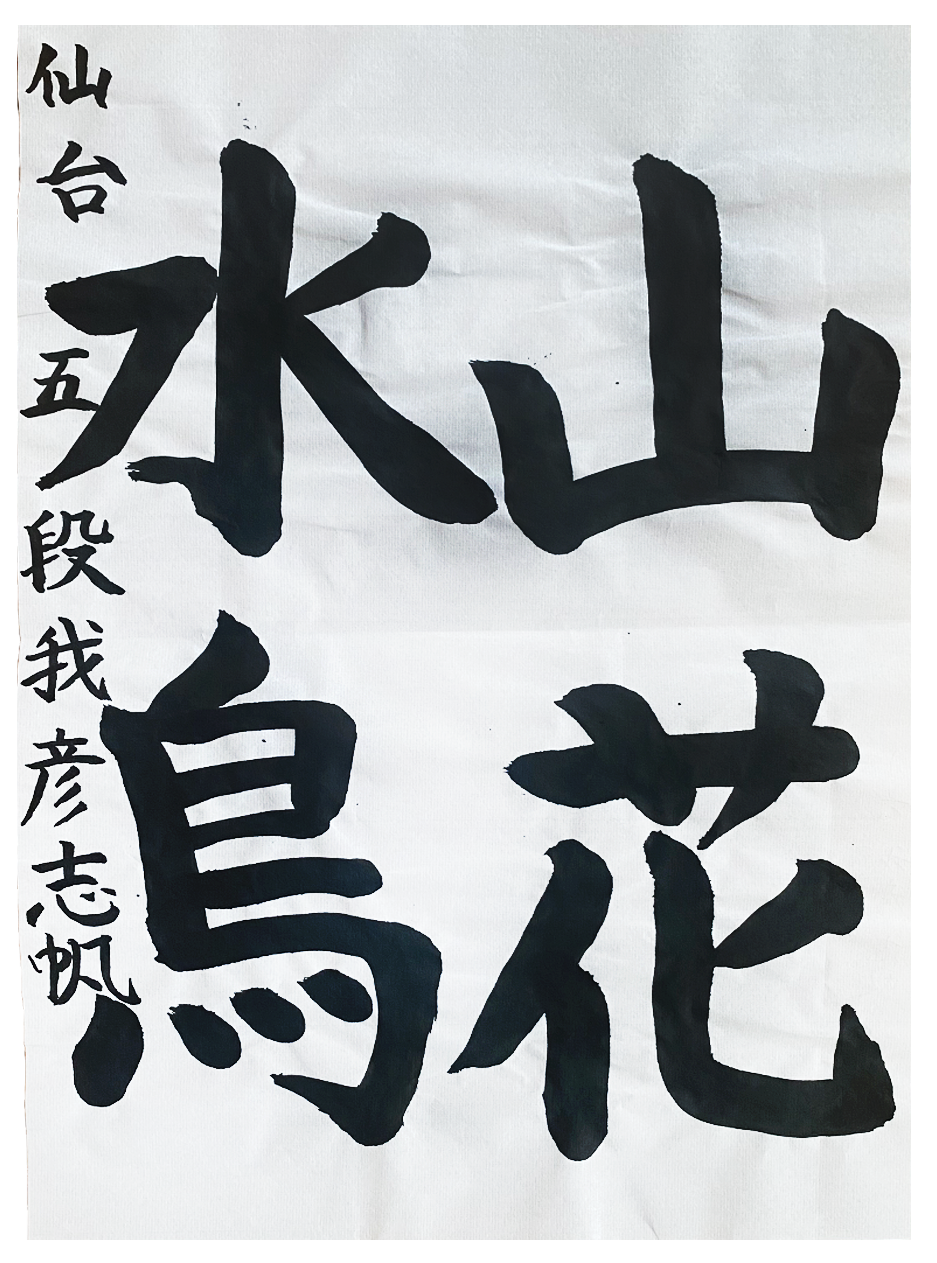 山花
水鳥
仙台五段我彦志帆